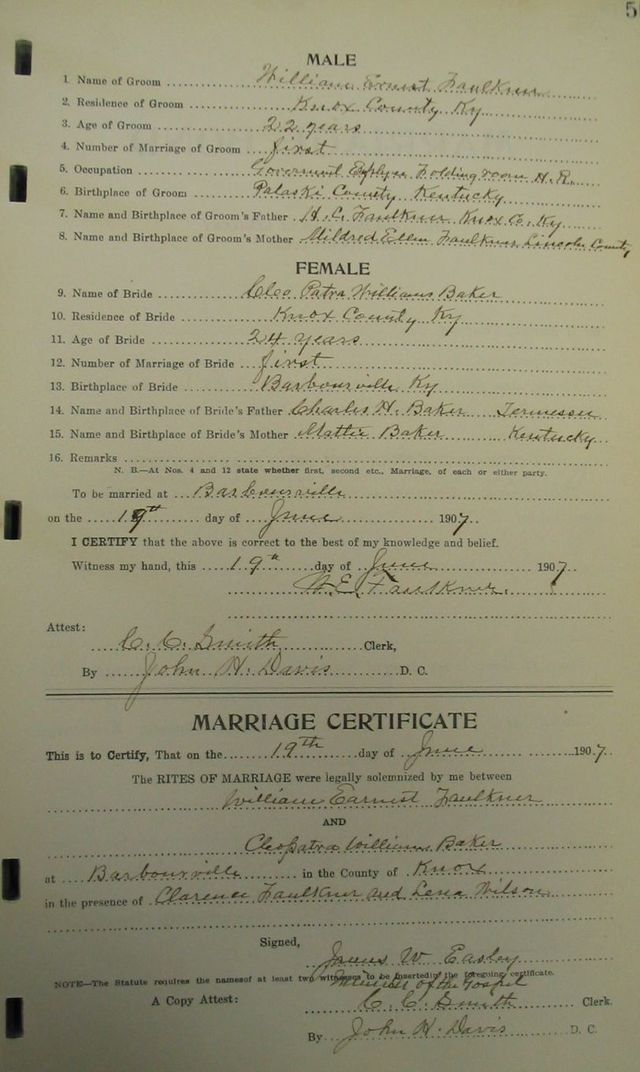 5
MALE
1. Name of Groom William Ernest Faulkner
2. Residence of Groom Knox County Ky
3. Age of Groom 22 years
4. Number of Marriage of Groom first
5. Occupation Folding room H. R.
6. Birthplace of Groom Palaski County Kentucky
7. Name and Birthplace of Groom's Father H. C. Faulkner Knox Co. Ky
8. Name and Birthplace of Groom's Mother Mildred Ellen Faulkner Lincoln County
FEMALE
9. Name of Bride Cleo Patra Williams Baker
10. Residence of Bride Knox County Ky
11. Age of Bride 24 years
12. Number of Marriage of Bride first
13. Birthplace of Bride Barbourville Ky
14. Name and Birthplace of Bride's Father Charles H. Baker Tennessee
15. Name and Birthplace of Bride's Mother Mattie Baker Kentucky
16. Remarks
N. B.—At Nos. 4 and 12 state whether first, second etc., Marriage, of each or either party.
To be married at Barbourville
on the 19th day of June 1907
I CERTIFY that the above is correct to the best of my knowledge and belief.
Witness my hand, this 19th day of June 1907
W. E. Faulkner.
Attest:
C. C. Smith Clerk,
By John H. Davis D. C.
MARRIAGE CERTIFICATE
This is to Certify, That on the 19th day of June 1907.
The RITES OF MARRIAGE were legally solemnized by me between
William Earnest Faulkner
AND
Cleopatra Williams Baker
at Barbourville in the County of Knox
in the presence of Clarence Faulkner and Lena Wilson
Signed,
James W. Easley
NOTE—The Statute requires the namesof at least two witnesses to be insertedin the foregoing certificate.
Minister of the Gospel
A Copy Attest: C. C. Smith Clerk.
By John H. Davis D. C.